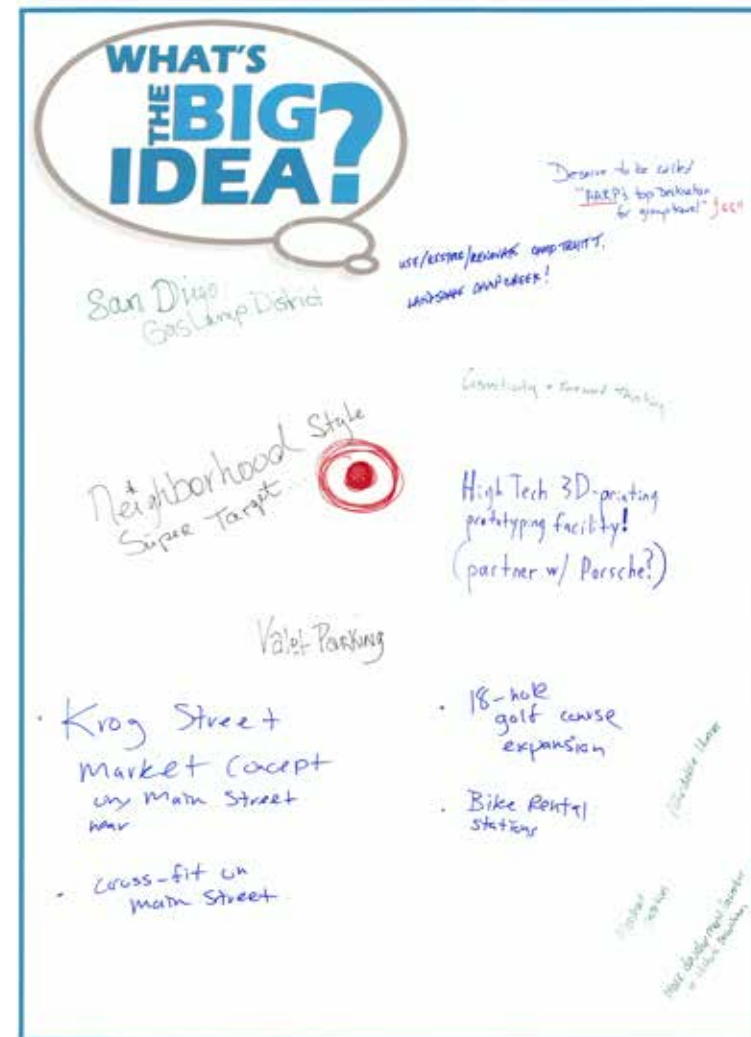 WHAT'S
THE BIG
IDEA?
Deserve to be called
"AARP's top Destination
for group travel"
USE/RESTORE/RENOVATE CAMP TRUITT.
LANDSCAPE CAMP CREEK!
San Diego
GasLamp District
Neighborhood Style
Super Target
High Tech 3D-printing
prototyping facility!
(partner w/ Porsche?)
Valet Parking
· Krog Street
Market Concept
on Main Street
near
· cross-fit on
main Street
· 18-hole
golf course
expansion
· Bike Rental
stations